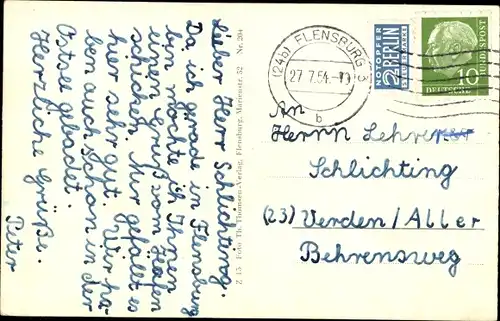 Lieber Herr Schlichting.
Da ich gerade in Flensburg
bin möchte ich Ihnen
einen Gruß vom Hafen
schicken. Mir gefällt es
hier sehr gut. Wir ha-
ben auch schon in der
Ostsee gebadet.
Herzliche Grüße.
Peter
Z 15 Foto Th. Thomsen-Verlag, Flensburg, Marienstr. 52 Nr. 204
(24b) FLENSBURG 3
27.7.54.
b
NOTOPFER
2 BERLIN
STEUERMARKE
DEUTSCHE
BUNDESPOST
10
An
Herrn Lehrer
Schlichting
(23) Verden/Aller
Behrensweg